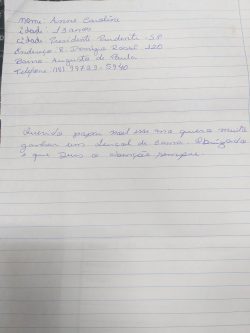 Nome: Anne Caroline
Idade: 13 anos
Cidade: Presidente Prudente - SP
Endereço R. Domigos 120
Bairro Augusto de Paula
Telefone (18) 99739.5940
Querido papai noel esse ano quero muito
ganhar um lençol de cama. Obrigada
e que Deus o abençõe sempre.